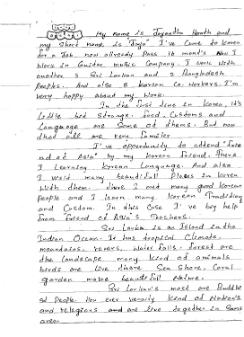 My name is Jayantha
my short name is "Jayo" I've come to Korea
for a Job. now already Pass 10 month's Now I
work in Guitar making Company. I work with
another 3 Sri Lankan and 2 Bangladesh
Peoples. And also 8 korean Co. workers. I'm
very happy about my work.
In the first time in Korea, it's
little bit strange. food, Customs and
Language are some of them. But now
that all are very familiar
I've opportunity to attend "friend
ad of Asia" by my korean friend. There
I Learning Korean Language. And also
I visit many beautiful places in korea
with them. there I met many good Korean
people and I learn many korean
and Custom. In this Case I've big help
from friend of Asia's Teachers.
Sri Lanka is an Island in the
Indian Ocean. It has tropical Climate.
mountains. rivers, water falls. forest are
the landscape many kind of animals
birds are live there. Sea Shore, Coral
garden make beautiful Nature.
Sri Lankan's most are Buddhi
st People. How ever many kind of Nation's
and religions and are live together in Same
area.